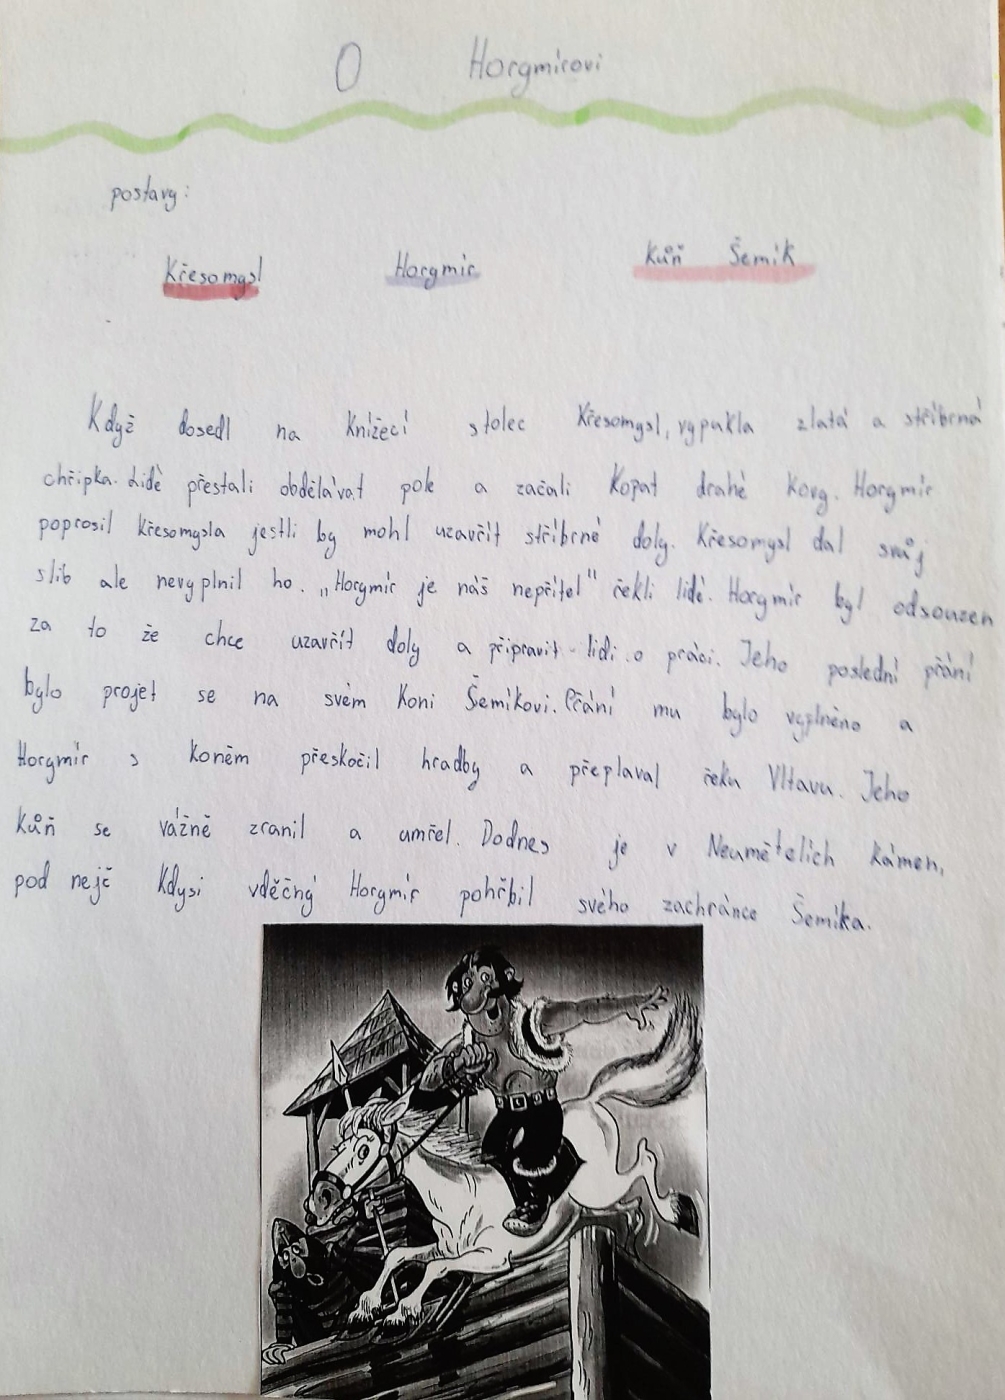 O Horymírovi
postavy:
Křesomysl Horymír Kůň Šemík
Když dosedl na Knížecí stolec Křesomysl, vypukla zlatá a stříbrná
chřipka. Lidé přestali obdělávat pole a začali Kopat drahé Kovy. Horymír
poprosil Křesomysla jestli by mohl uzavřít stříbrné doly. Křesomysl dal svůj
slib ale nevyplnil ho. „Horymír je náš nepřítel" řekli lidé. Horymír byl odsouzen
za to že chce uzavřít doly a připravit lidi o práci. Jeho poslední přání
bylo projet se na svém Koni Šemíkovi. Přání mu bylo vyplněno a
Horymír s koněm přeskočil hradby a přeplaval řeku Vltavu. Jeho
Kůň se vážně zranil a umřel. Dodnes je v Neumětelích Kámen,
pod nejž Kdysi vděčný Horymír pohřbil svého zachránce Šemíka.